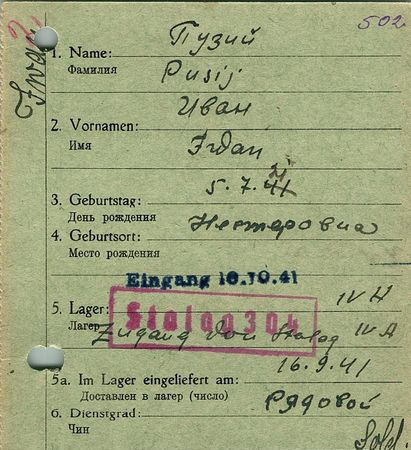 502
1. Name: Пузий
Фамилия Pusij
Иван
2. Vornamen:
Имя Ivan
3. Geburtstag: 5.7.
День рождения
4. Geburtsort: Нестеровка
Место рождения
Eingang 18.10.41
5. Lager: IV H
Лагерь Stalag 304
Zugang von Stalag IV A
16.9.41
5a. Im Lager eingeliefert am:
Доставлен в лагер (число) Рядовой
6. Dienstgrad:
Чин Sold.